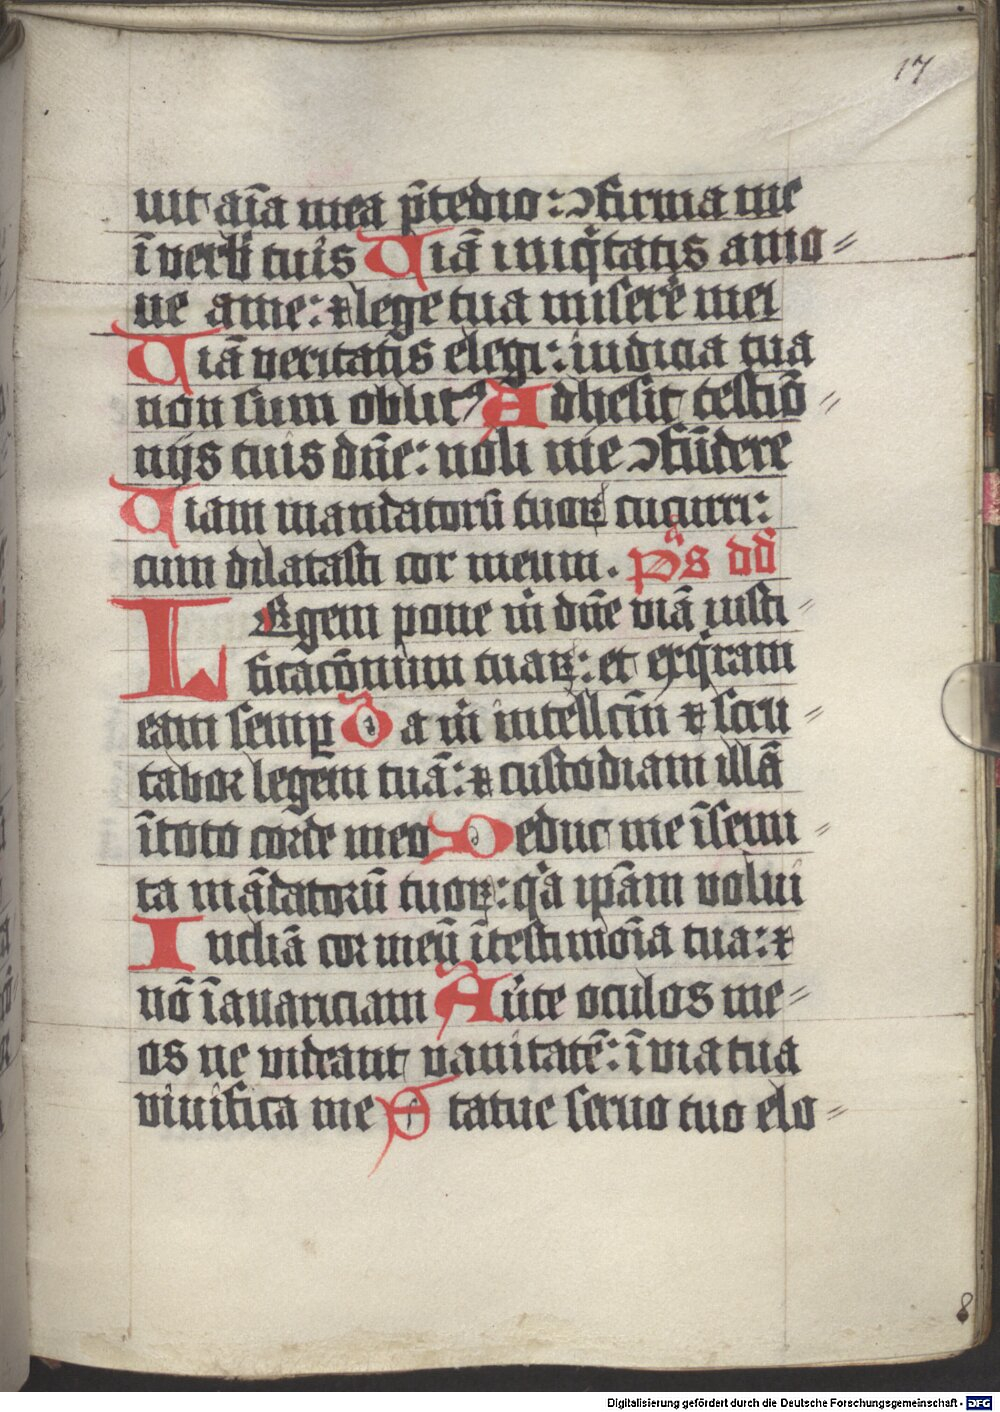 17
uit aīa mea p̄tedio: ꝯfirma me
ī verb̄ tuis Uiā iniq̄tatis amo⸗
ue ame: ⁊ lege tua miserē mei
Uiā veritatis elegi: iudicia tua
non sum oblitꝰ Adhesit testiō⸗
nijs tuis dn̄e: noli me ꝯfūdere
Uiam mandatorū tuoꝝ cucurri:
cum dilatasti cor meum. pˢs dd̄
LEgem pone m̄ dn̄e viā iusti⸗
ficacōnum tuaꝝ: et exqͥram
eam semꝑ Da m̄ intellcm̄ ⁊ scru⸗
tabor legem tuā: ⁊ custodiam illā
ī toto corde meo Deduc me ī semi⸗
ta mādatorū tuoꝝ: qͥa ip̄am volui
Inclīa cor meū ī testimoīa tua: ⁊
nō ī auariciam Aūte oculos me⸗
os ne videant vanitatē: ī via tua
viuifica me Statue seruo tuo elo⸗
8
Digitalisierung gefördert durch die Deutsche Forschungsgemeinschaft - DFG